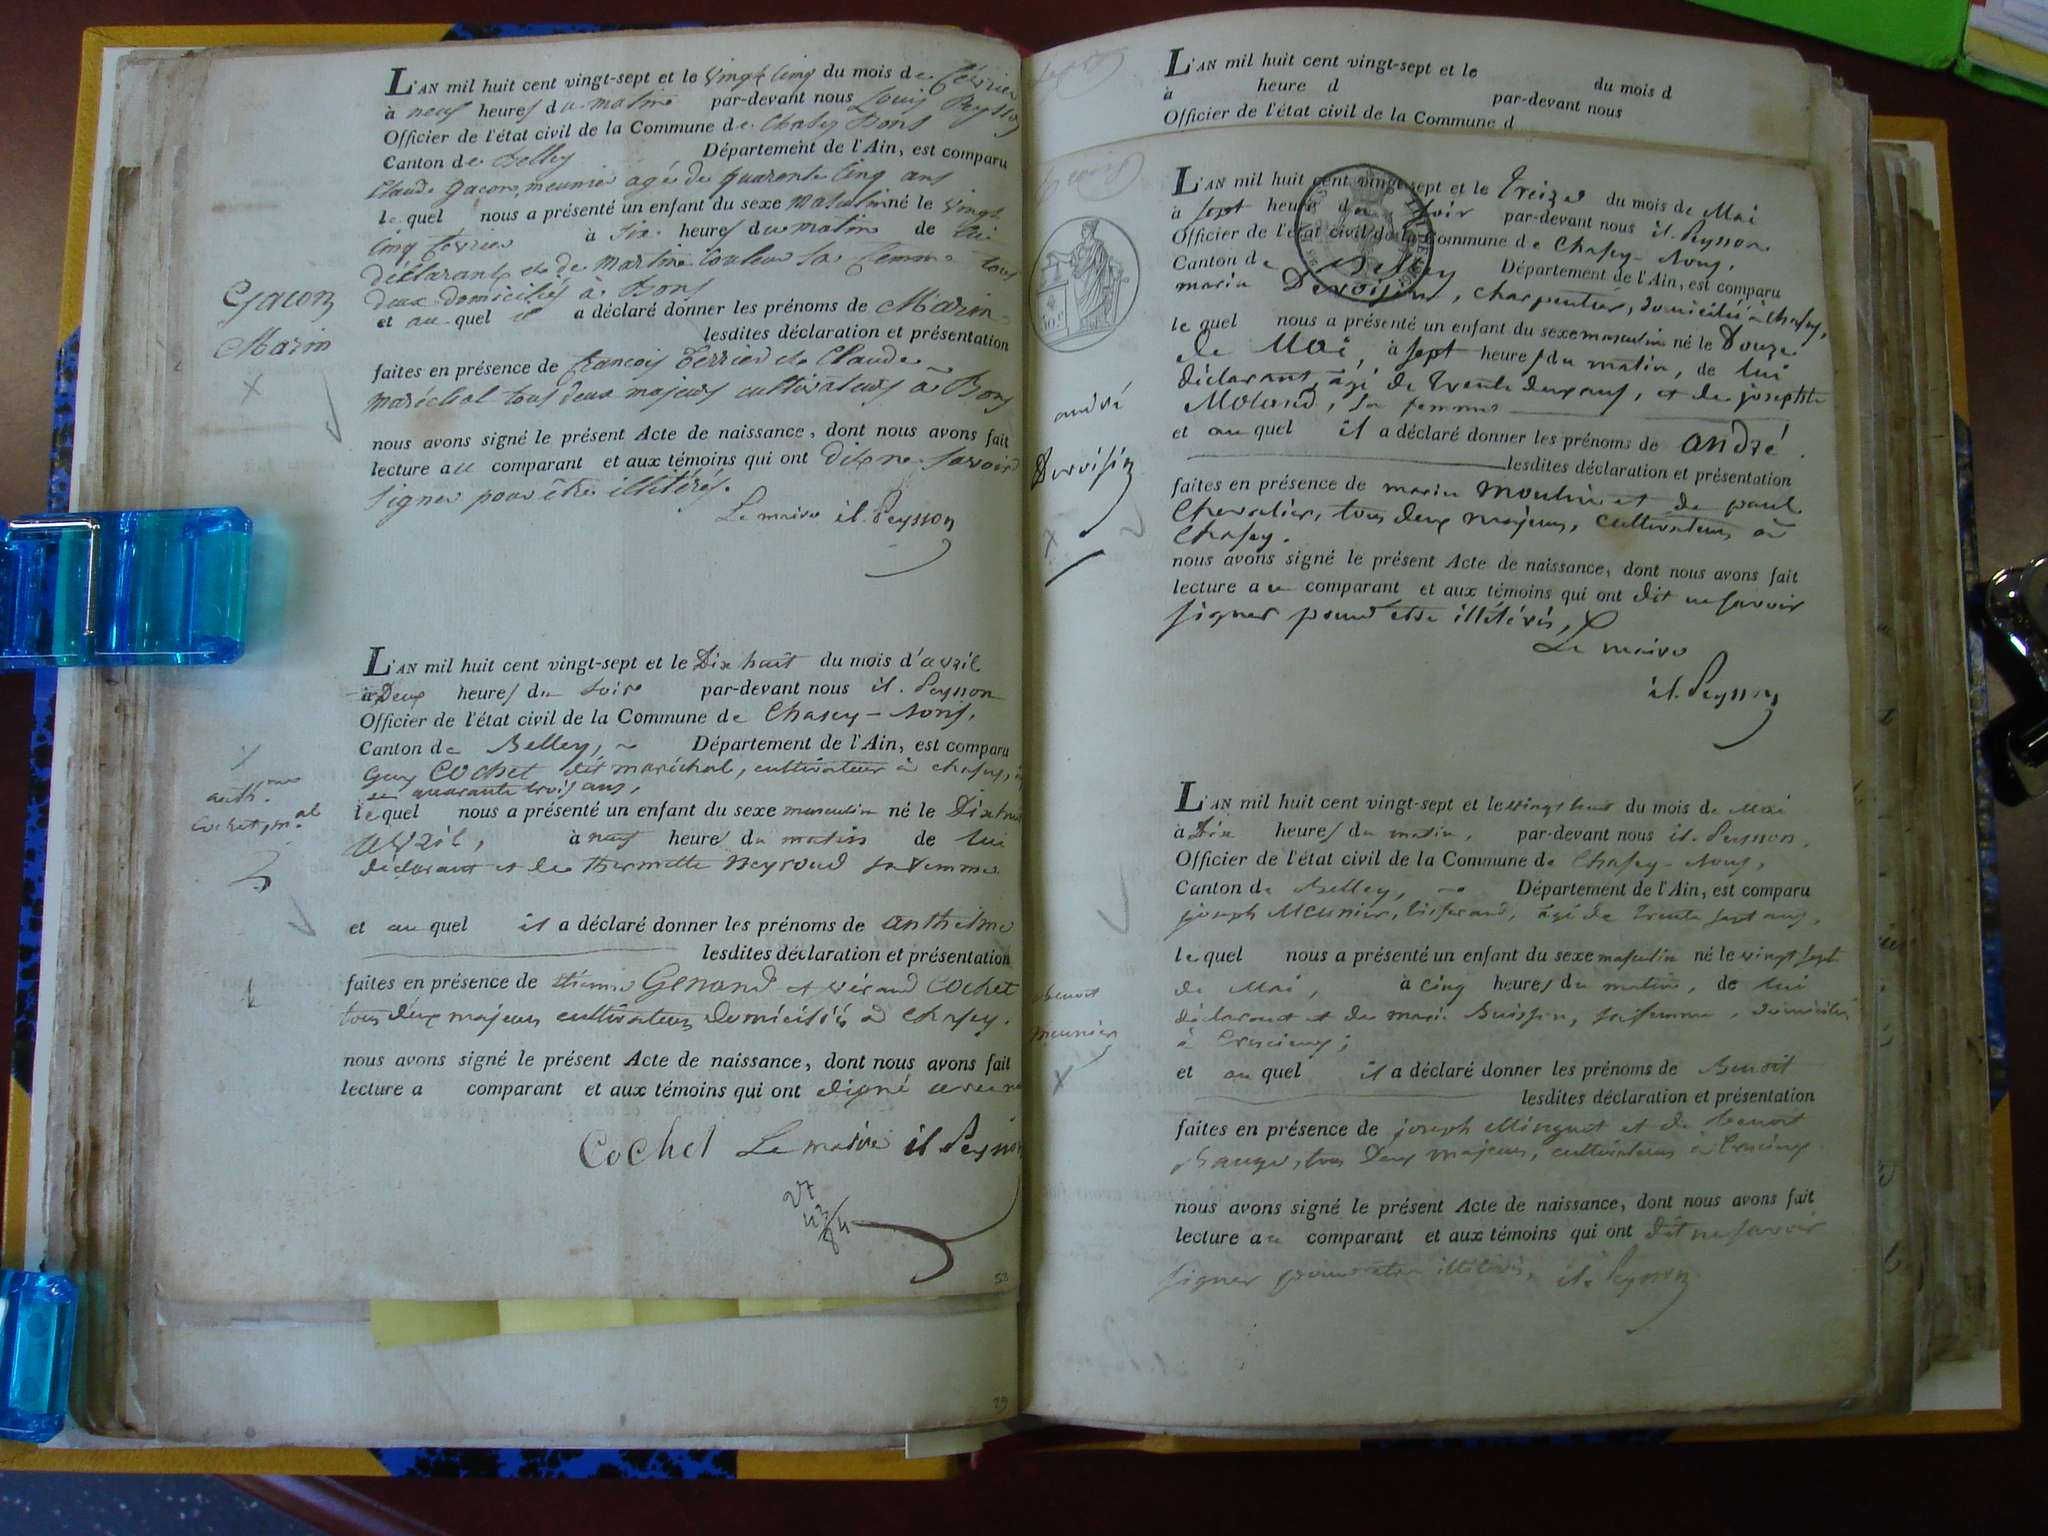 L'AN mil huit cent vingt-sept et le vingt cinq du mois de février
à neuf heures du matin par-devant nous Louis Peysson
Officier de l'état civil de la Commune de Chasey Bons
Canton de Belley Département de l'Ain, est comparu
Claude Gacon, meunier âgé de quarante cinq ans
le quel nous a présenté un enfant du sexe masculin né le vingt
cinq février à six heures du matin de lui
déclarant et de Martine sa femme tous
deux domiciliés à Bons
Gacon
Marin
et au quel il a déclaré donner les prénoms de Marin
lesdites déclaration et présentation
faites en présence de françois Terrier et Claude
maréchal tous deux majeurs cultivateurs à Bons
nous avons signé le présent Acte de naissance, dont nous avons fait
lecture au comparant et aux témoins qui ont dit ne savoir
signer pour être illitérés.
Le maire il. Peysson
L'AN mil huit cent vingt-sept et le Dix huit du mois d'avril
à Deux heures du soir par-devant nous il. Peysson
Officier de l'état civil de la Commune de Chasey-Bons,
Canton de Belley, Département de l'Ain, est comparu
Guy Cochet dit maréchal, cultivateur à chasey,
de quarante trois ans,
anth.me
cochet, m.al
le quel nous a présenté un enfant du sexe masculin né le Dix huit
avril, à neuf heures du matin de lui
déclarant et de thermette Neyroud sa femme
et au quel il a déclaré donner les prénoms de anthelme
lesdites déclaration et présentation
faites en présence de étienne Genand et Cochet
tous deux majeurs cultivateurs domiciliés à chasey.
nous avons signé le présent Acte de naissance, dont nous avons fait
lecture a comparant et aux témoins qui ont signé avec
Cochet Le maire il Peysson
27
43
84
58
29
L'AN mil huit cent vingt-sept et le du mois d
à heure d par-devant nous
Officier de l'état civil de la Commune d
L'AN mil huit cent vingt-sept et le treize du mois de Mai
à sept heure du soir par-devant nous il. Peysson
Officier de l'état civil de la Commune de Chasey-Bons,
Canton de Belley Département de l'Ain, est comparu
marin Dervoisin, charpentier, domicilié à chasey,
le quel nous a présenté un enfant du sexe masculin né le Douze
de Mai, à sept heures du matin, de lui
déclarant, âgé de trente deux ans, et de josephte
Moland, sa femme
andré
Dervoisin
et au quel il a déclaré donner les prénoms de andré.
lesdites déclaration et présentation
faites en présence de marin moulin et de paul
Chevalier, tous deux majeurs, cultivateurs à
Chasey.
nous avons signé le présent Acte de naissance, dont nous avons fait
lecture au comparant et aux témoins qui ont dit ne savoir
signer pour être illitérés,
Le maire
il. Peysson
L'AN mil huit cent vingt-sept et le vingt huit du mois de Mai
à Dix heures du matin, par-devant nous il. Peysson,
Officier de l'état civil de la Commune de Chasey-Bons,
Canton de Belley, Département de l'Ain, est comparu
joseph Meunier, tisserand, âgé de trente sept ans,
le quel nous a présenté un enfant du sexe masculin né le vingt sept
de Mai, à cinq heures du matin, de lui
déclarant et de marie Buisson, sa femme, domiciliés
à Cressieux;
benoit
meunier
et au quel il a déclaré donner les prénoms de Benoit
lesdites déclaration et présentation
faites en présence de joseph Minguet et de benoit
tous Deux majeurs, cultivateurs à Cressieux
nous avons signé le présent Acte de naissance, dont nous avons fait
lecture au comparant et aux témoins qui ont dit ne savoir
signer pour être illitérés, il. Peysson